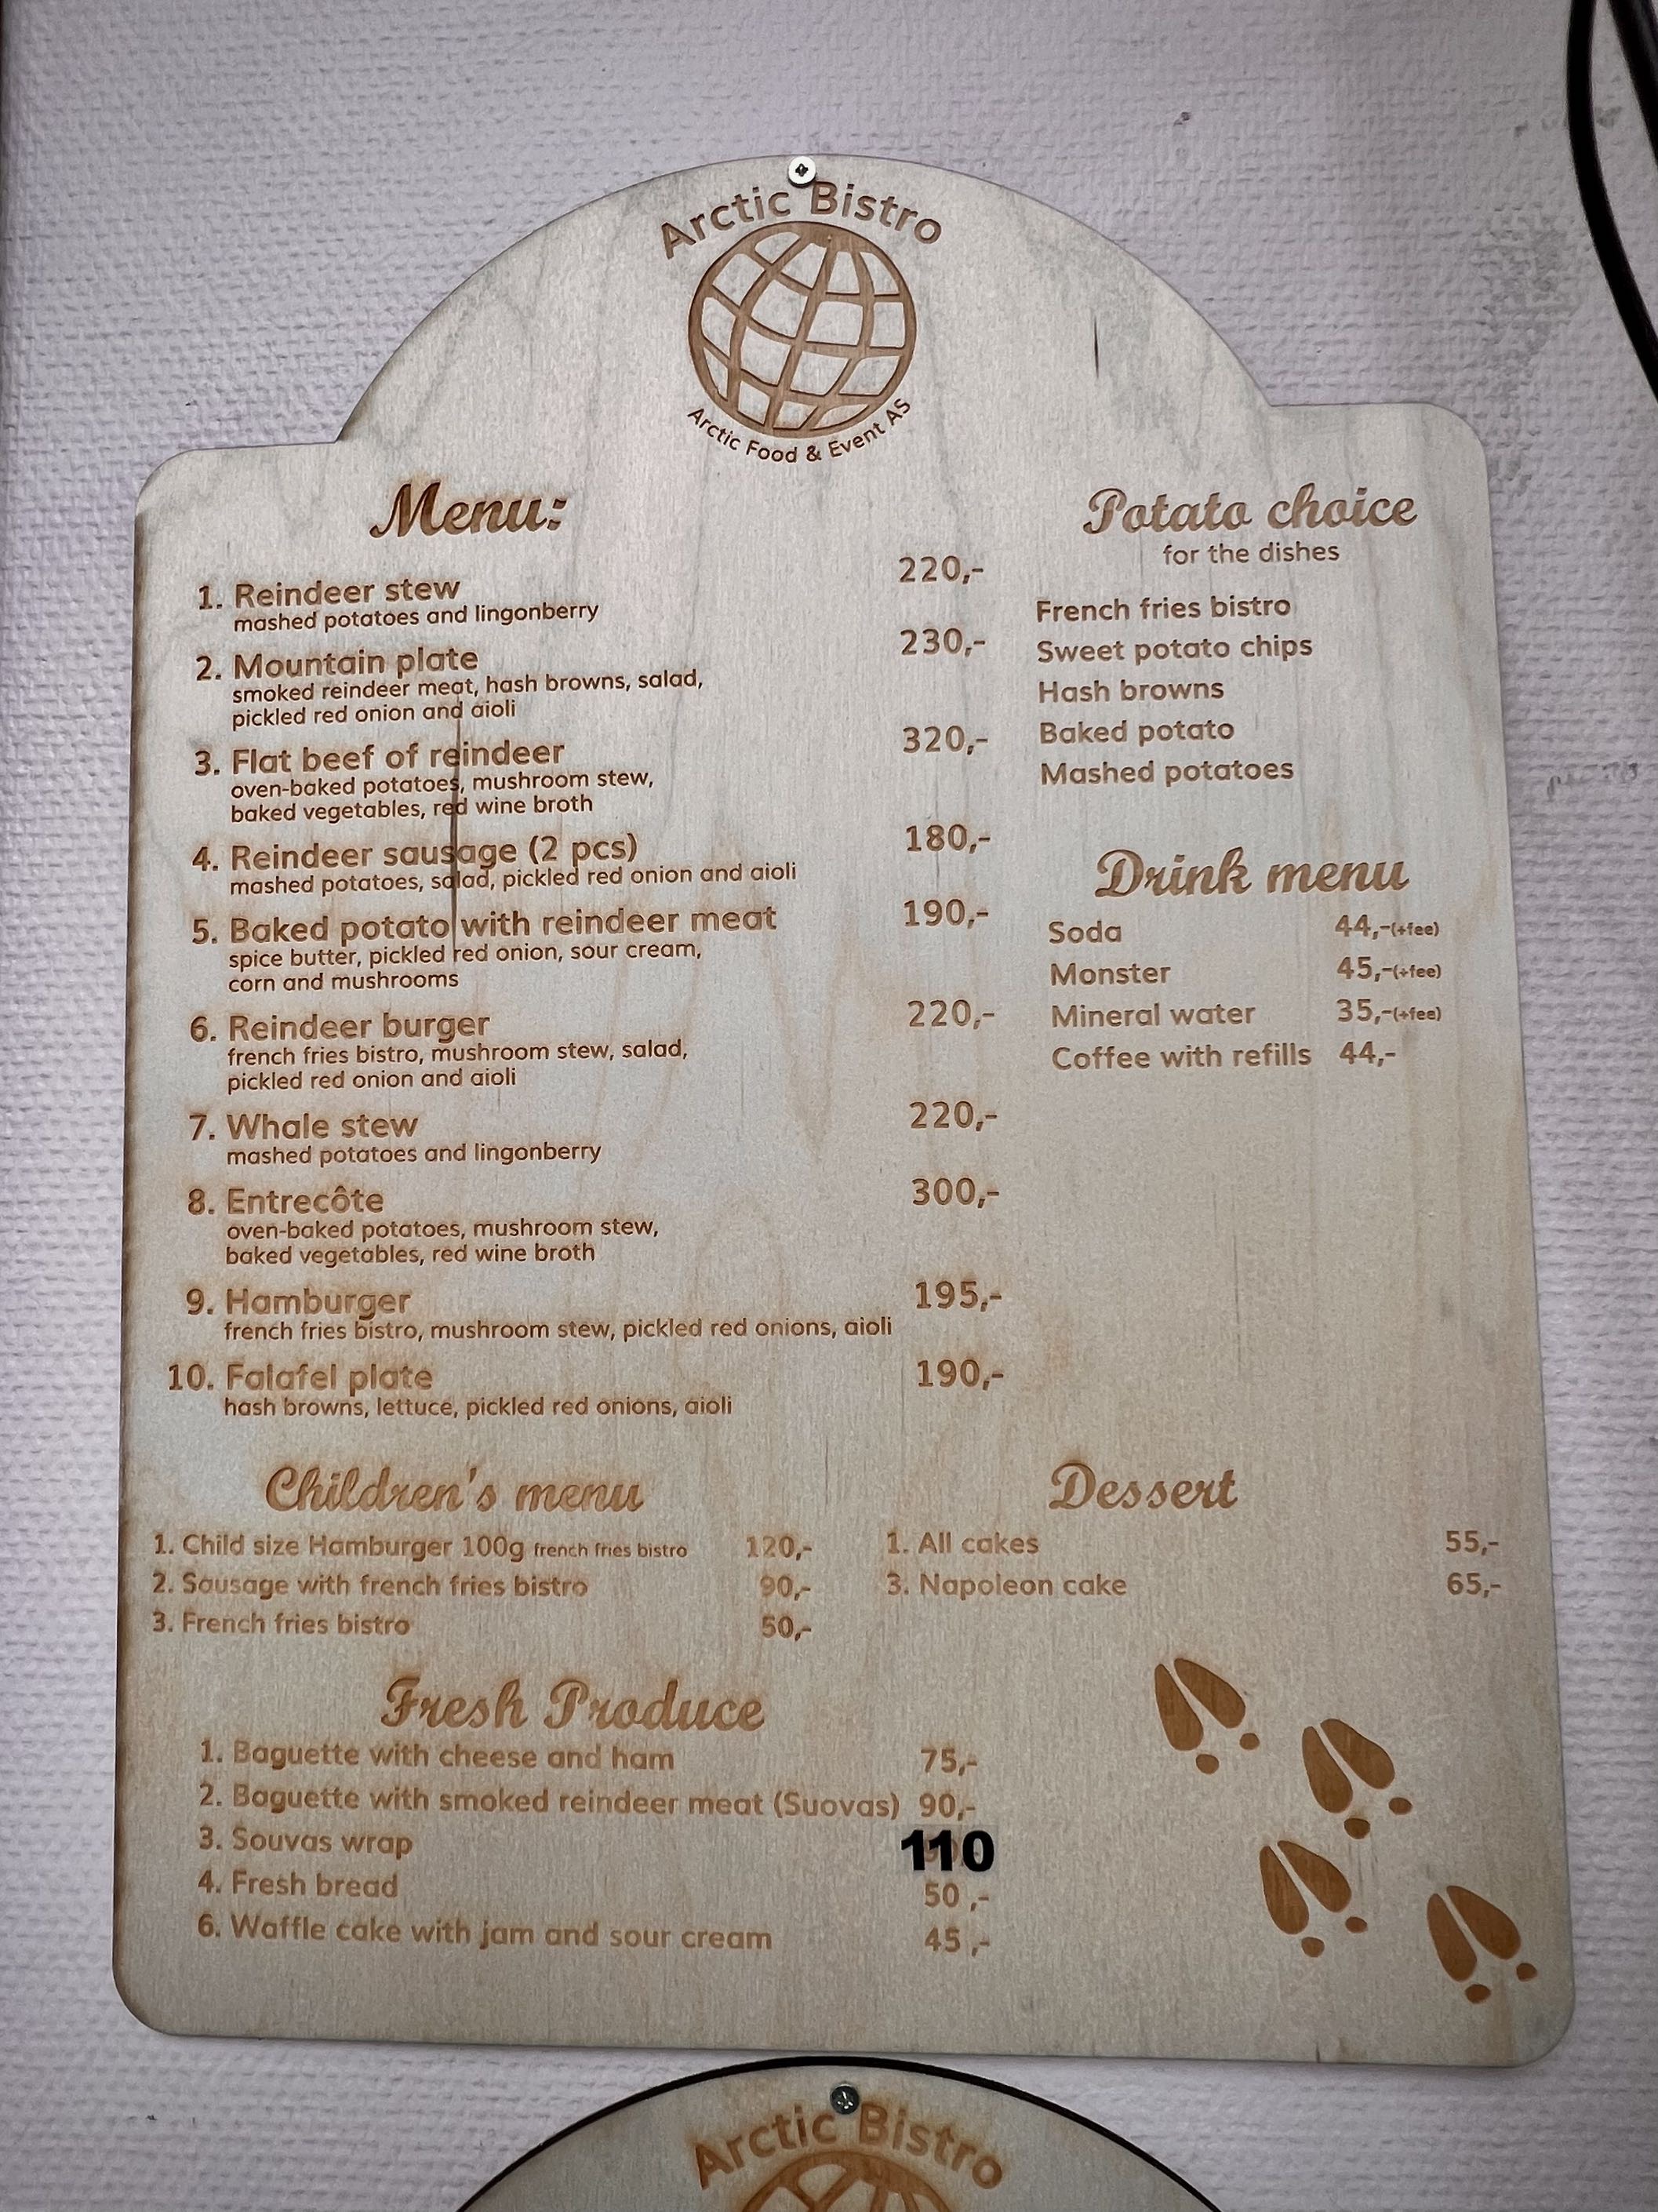 Arctic Bistro
Arctic Food & Event AS
Menu:
1. Reindeer stew 220,-
mashed potatoes and lingonberry
2. Mountain plate 230,-
smoked reindeer meat, hash browns, salad,
pickled red onion and aioli
3. Flat beef of reindeer 320,-
oven-baked potatoes, mushroom stew,
baked vegetables, red wine broth
4. Reindeer sausage (2 pcs) 180,-
mashed potatoes, salad, pickled red onion and aioli
5. Baked potato with reindeer meat 190,-
spice butter, pickled red onion, sour cream,
corn and mushrooms
6. Reindeer burger 220,-
french fries bistro, mushroom stew, salad,
pickled red onion and aioli
7. Whale stew 220,-
mashed potatoes and lingonberry
8. Entrecôte 300,-
oven-baked potatoes, mushroom stew,
baked vegetables, red wine broth
9. Hamburger 195,-
french fries bistro, mushroom stew, pickled red onions, aioli
10. Falafel plate 190,-
hash browns, lettuce, pickled red onions, aioli
Potato choice
for the dishes
French fries bistro
Sweet potato chips
Hash browns
Baked potato
Mashed potatoes
Drink menu
Soda 44,-(+fee)
Monster 45,-(+fee)
Mineral water 35,-(+fee)
Coffee with refills 44,-
Children's menu
1. Child size Hamburger 100g french fries bistro 120,-
2. Sausage with french fries bistro 90,-
3. French fries bistro 50,-
Dessert
1. All cakes 55,-
3. Napoleon cake 65,-
Fresh Produce
1. Baguette with cheese and ham 75,-
2. Baguette with smoked reindeer meat (Suovas) 90,-
3. Souvas wrap 110
4. Fresh bread 50 ,-
6. Waffle cake with jam and sour cream 45 ,-
Arctic Bistro